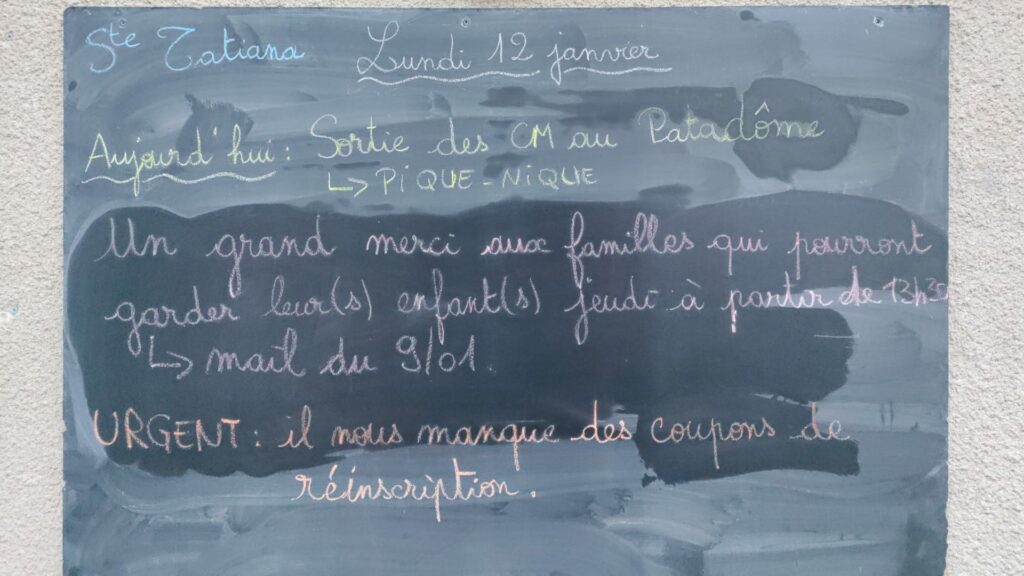 Ste Tatiana
Lundi 12 janvier
Aujourd'hui : Sortie des CM au Patadôme
↳ PIQUE-NIQUE
Un grand merci aux familles qui pourront
garder leur(s) enfant(s) jeudi à partir de 13h30
↳ mail du 9/01.
URGENT : il nous manque des coupons de
réinscription.